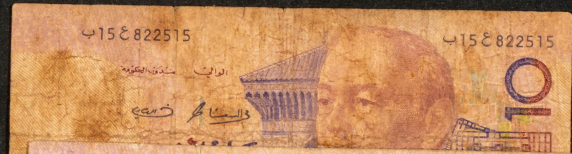 ب15ع822515 ب15ع822515
الوالي مندوب الحكومة
10